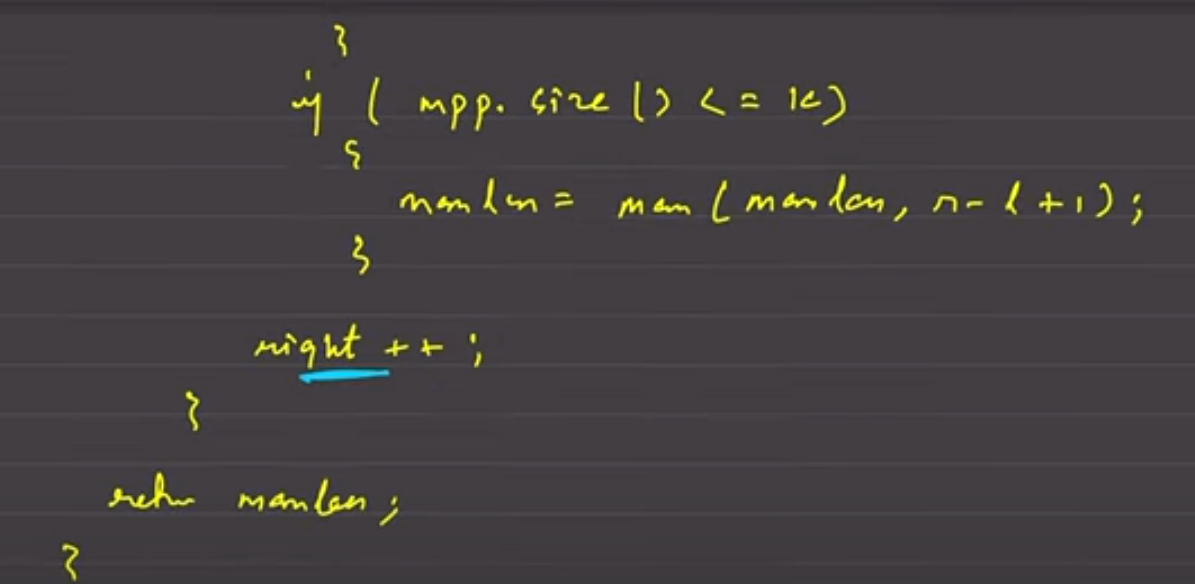 }
if ( mpp.size () <= k)
{
maxlen = max ( maxlen, r - l + 1 ) ;
}
right ++ ;
}
return maxlen ;
}